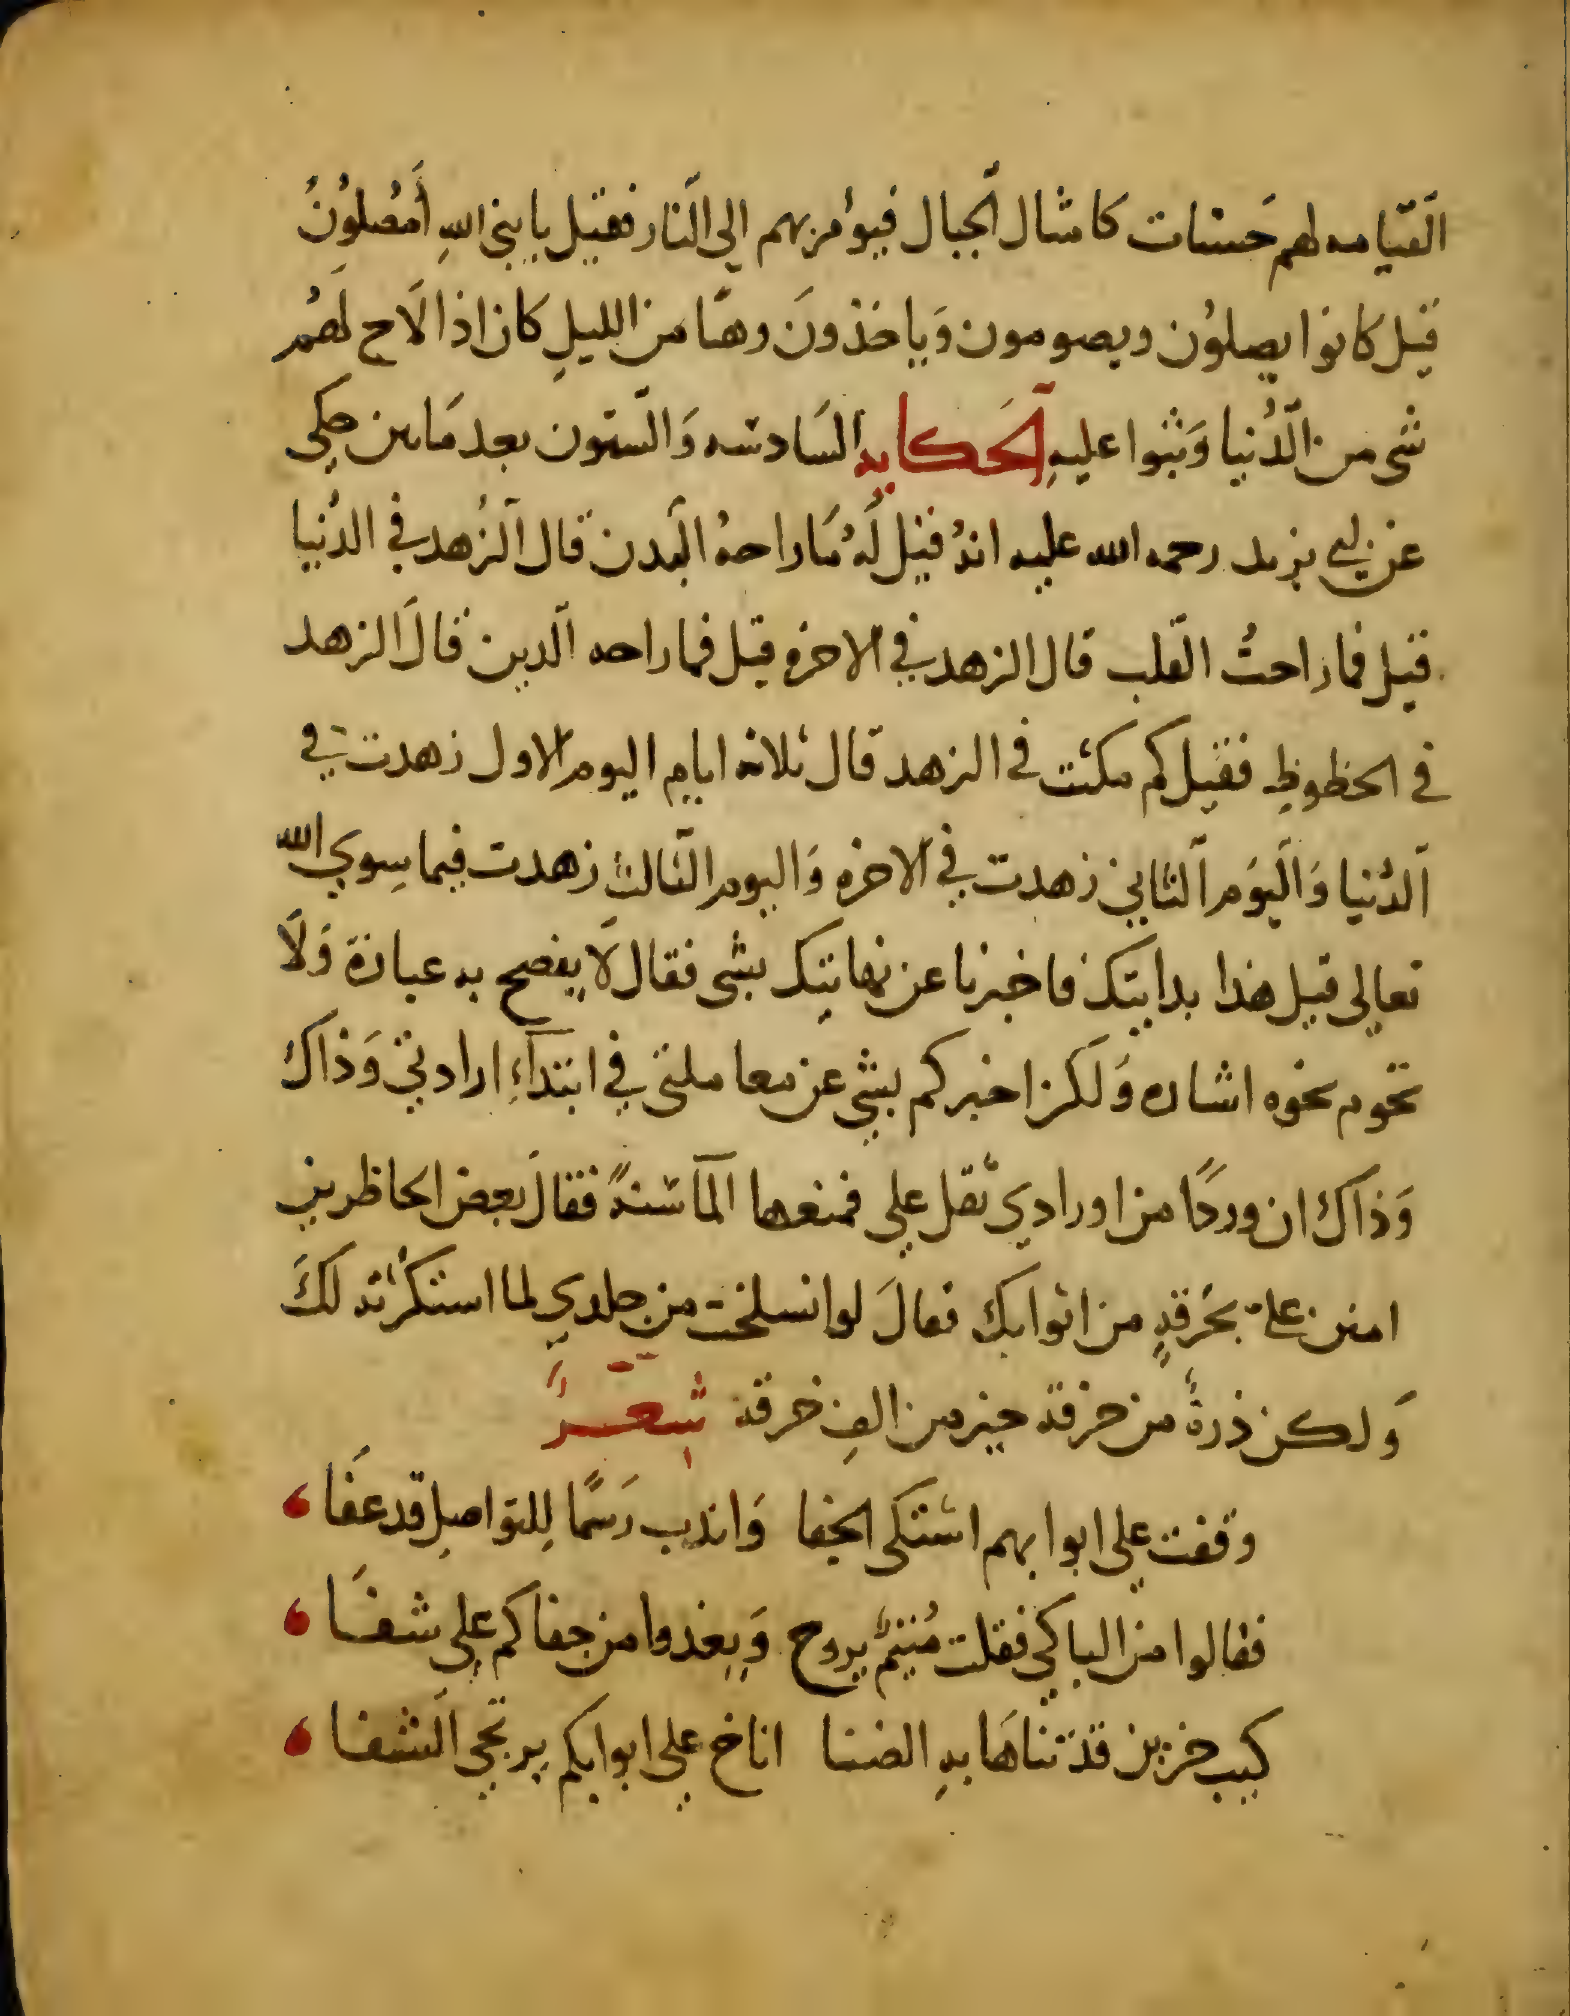 القيامه لهم حسنات كامثال الجبال فيؤمر بهم الى النار فقيل يا نبى الله أمصلون
قيل كانوا يصلون ويصومون وياخذون وهنا من الليل كان اذا لاح لهم
شى من الدنيا وثبوا عليه الحكايه السادسه والستون بعد مايتن حكي
عن ابي يزيد رحمه الله عليه انه قيل له ما راحة البدن قال الزهد في الدنيا
قيل فما راحت القلب قال الزهد في الاخره قيل فما راحه الدين قال الزهد
في الحظوظ فقيل كم مكثت في الزهد قال ثلاثه ايام اليوم الاول زهدت في
الدنيا واليوم الثاني زهدت في الاخره واليوم الثالث زهدت فيما سوي الله
تعالي قيل هذا بدايتك فاخبرنا عن نهايتك بشى فقال لا يفصح به عبارة ولا
تحوم نحوه اشاره ولكن اخبركم بشي عن معاملتى في ابتدآء ارادتي وذاك
وذاك ان وردًا من اورادي ثقل علي فمنعها المآ سنةً فقال بعض الحاظرين
امنن على بخرقةٍ من اثوابك فقال لو انسلخت من جلدي لما استكثرته لك
ولكن ذرةٌ من حرقة خير من الف خرقة شعـــرًا
وقفت علي ابوابهم اشتكى الجفا واندب رسمًا للتواصل قد عفا
فقالوا من الباكي فقلت متيمٌ يروح ويغدوا من جفاكم علي شفا
كيب حزين قد تناها به الضنا اناخ علي ابوابكم يرتجي الشفا